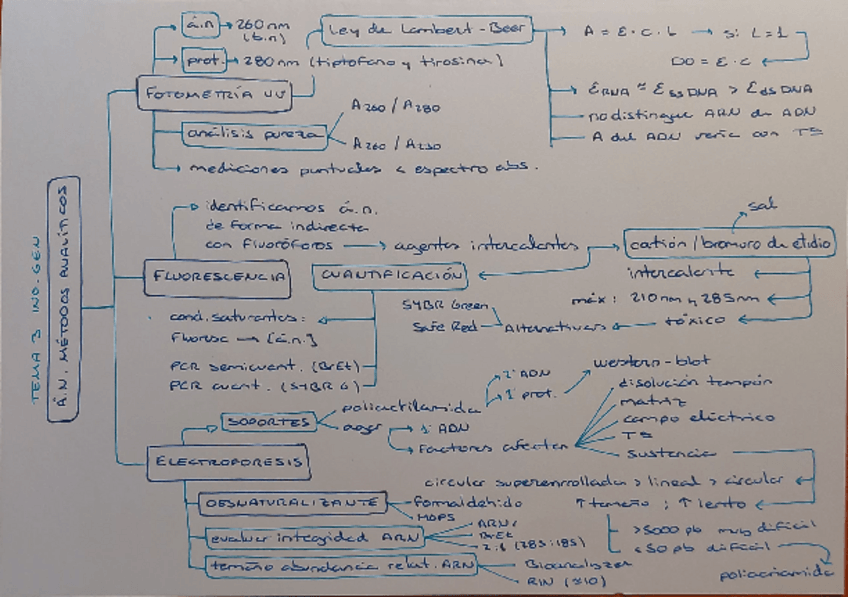 TEMA 3 ING. GEN
Á.N. MÉTODOS ANALÍTICOS
FOTOMETRÍA UV
á.n → 260 nm
(b.n)
prot. → 280 nm (tiptofano y tirosina)
Ley de Lambert-Beer
A = ε · c · L → si L = 1
DO = ε · c
ε RNA ≈ ε ss DNA > ε ds DNA
no distingue ARN de ADN
A del ADN varía con Tª
análisis pureza
A260 / A280
A260 / A230
mediciones puntuales < espectro abs.
FLUORESCENCIA
identificamos á.n.
de forma indirecta
con fluoróforos → agentes intercalantes
catión / bromuro de etidio
sal
intercalante
máx: 210 nm y 285 nm
tóxico
Alternativas
SYBR Green
Safe Red
CUANTIFICACIÓN
cond. saturantes:
Fluoresc → [á.n.]
PCR semicuant. (BrEt)
PCR cuant. (SYBR G)
ELECTROFORESIS
SOPORTES
poliacrilamida
2º ADN
1º prot.
western-blot
agar
1º ADN
Factores afectan
disolución tampón
matriz
campo eléctrico
Tª
sustancia
circular superenrollada > lineal > circular
↑ tamaño ; ↑ lento
> 5000 pb muy difícil
< 50 pb difícil
poliacrilamida
DESNATURALIZANTE
formaldehido
MOPS
evaluar integridad ARN
ARNr
BrEt
2:1 (28S:18S)
tamaño abundancia relat. ARN
Bioanalyzer
RIN (≤10)